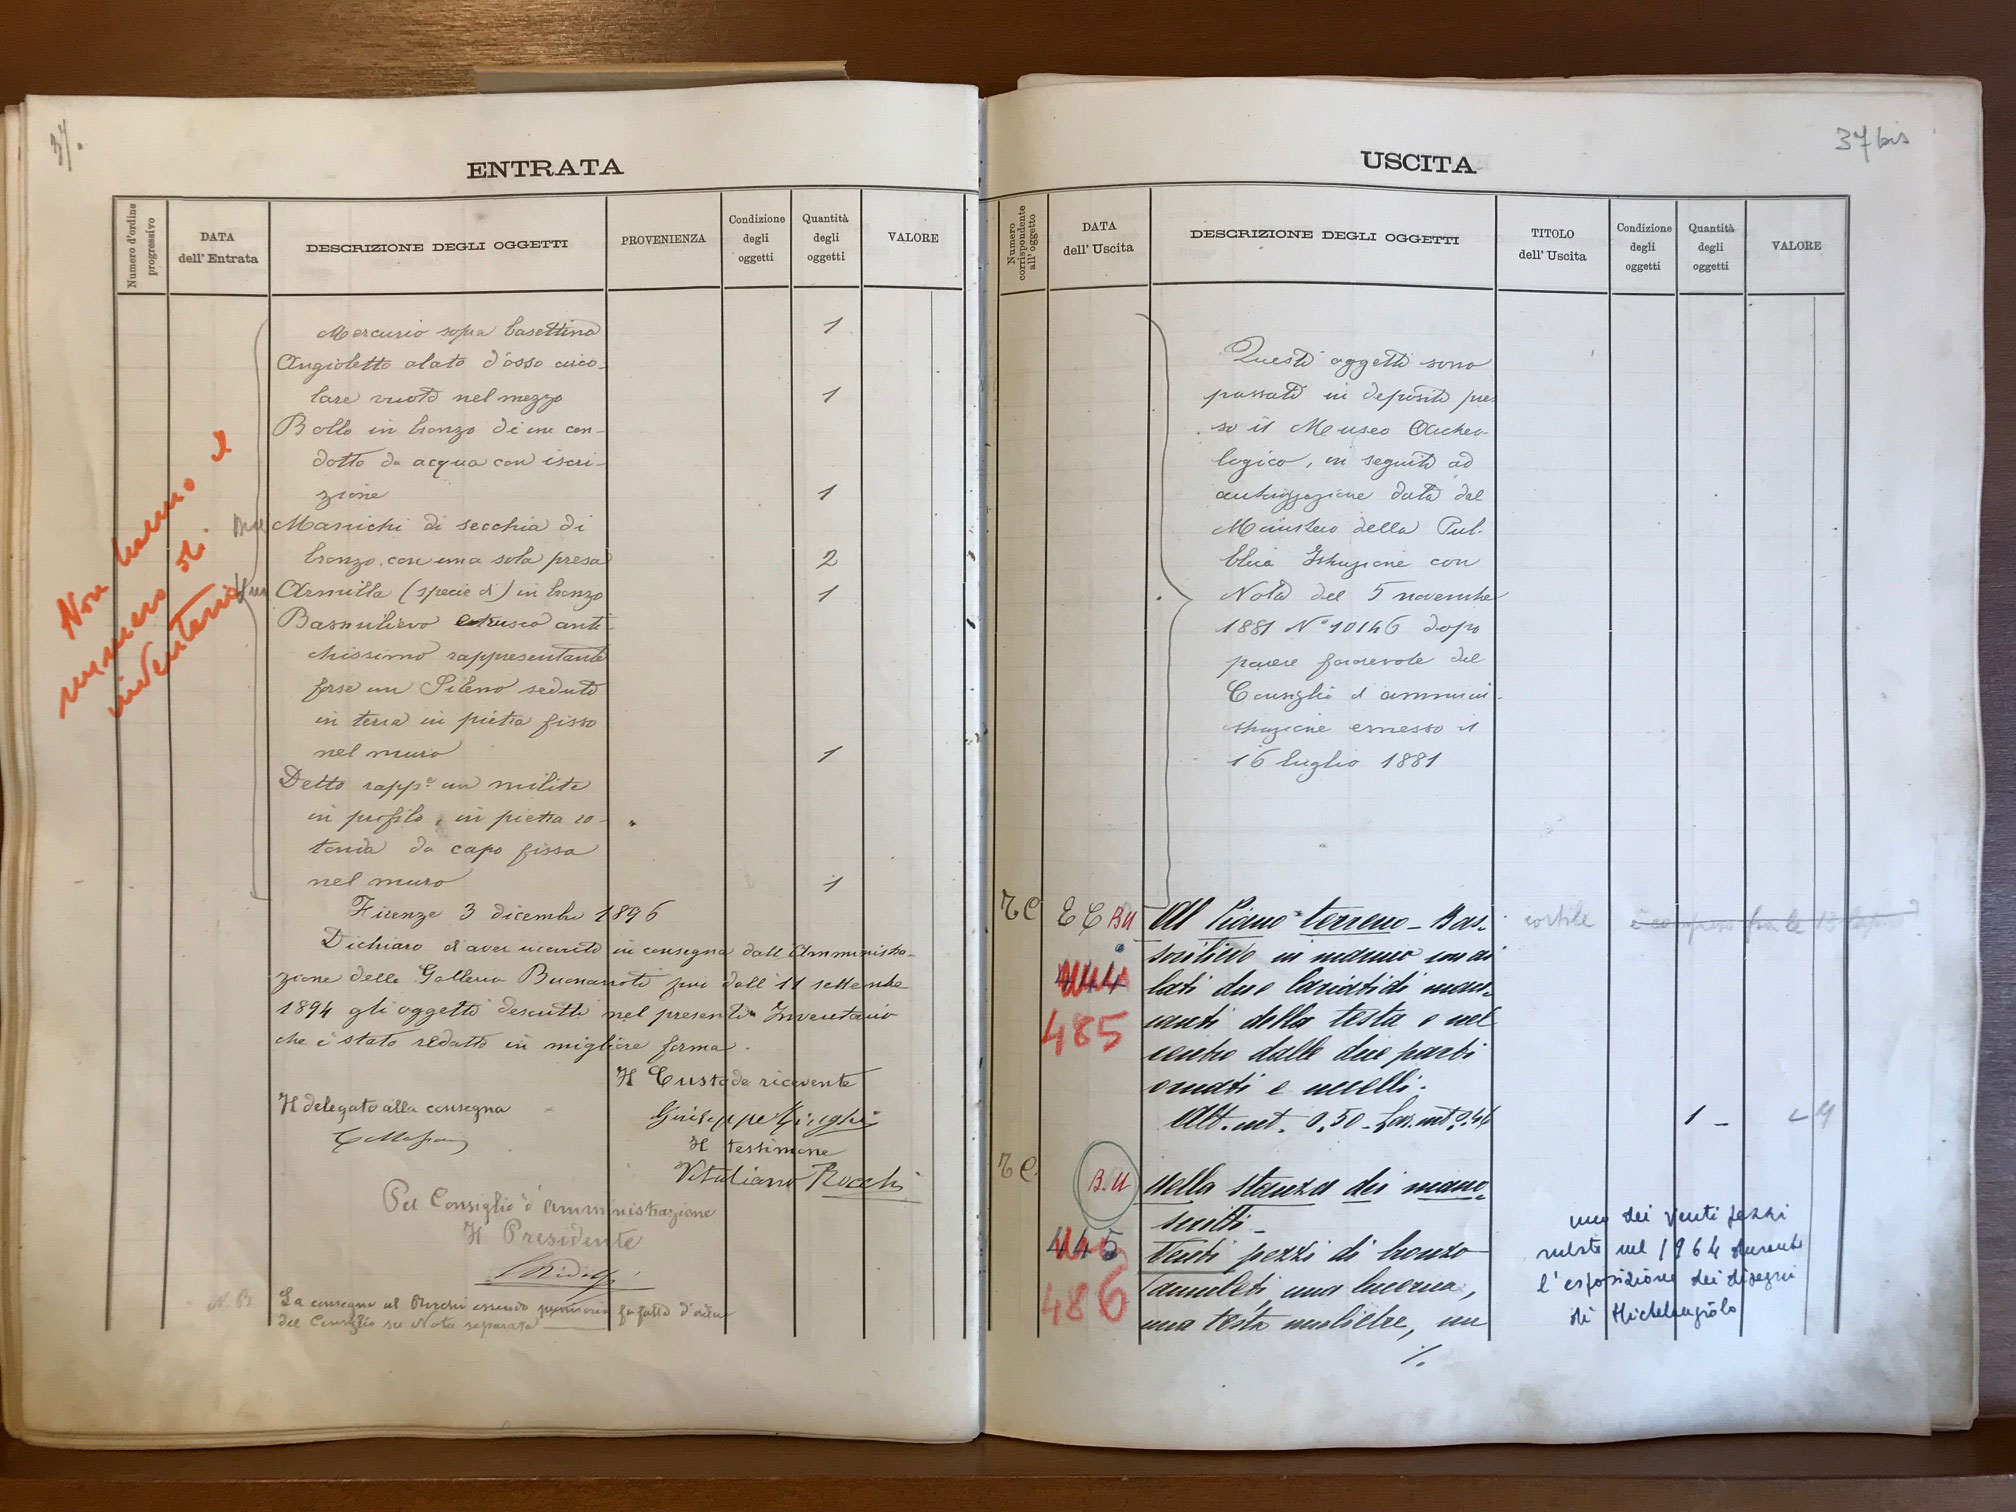 37.
ENTRATA
Numero d'ordine progressivo
DATA dell' Entrata
DESCRIZIONE DEGLI OGGETTI
PROVENIENZA
Condizione degli oggetti
Quantità degli oggetti
VALORE
Mercurio sopra basettina 1
Angioletto alato d'osso circo-
lare vuoto nel mezzo 1
Bollo in bronzo di un con-
dotto da acqua con iscri-
zione 1
Manichi di secchia di
bronzo, con una sola presa 2
Armilla (specie di) in bronzo 1
Bassorilievo etrusco anti-
chissimo rappresentante
forse un Sileno seduto
in terra in pietra fisso
nel muro 1
Detto rapp.e un milite
in profilo, in pietra ro-
tonda da capo fissa
nel muro 1
Non hanno il
numero di
inventario
Firenze 3 dicembre 1896
Dichiaro di aver ricevuto in consegna dall'Amministra-
zione della Galleria Buonarroti fino dall'11 settembre
1894 gli oggetti descritti nel presente Inventario
che è stato redatto in migliore forma.
Il Custode ricevente
Il delegato alla consegna
Giuseppe
Il testimone
Vitaliano Rocchi
Pel Consiglio d'amministrazione
Il Presidente
Ridolfi
N.B. La consegna al essendo provvisoria fu fatta d'ordine
del Consiglio su Nota separata
37 bis
USCITA
Numero corrispondente all' oggetto
DATA dell' Uscita
DESCRIZIONE DEGLI OGGETTI
TITOLO dell' Uscita
Condizione degli oggetti
Quantità degli oggetti
VALORE
Questi oggetti sono
passati in deposito pres-
so il Museo Archeo-
logico, in seguito ad
autorizzazione data dal
Ministero della Pub-
blica Istruzione con
Nota del 5 novembre
1881 N° 10146 dopo
parere favorevole del
Consiglio d'ammini-
strazione emesso il
16 luglio 1881
BU Al Piano terreno - Bas- cortile
sorilievo in marmo con ai
444 lati due Cariatidi man-
485 canti della testa e nel
centro dalle due parti
ornati e uccelli.
Alt. mt. 0,50 - Lar. mt 0.46 1 -
B.U nella stanza dei mano-
scritti -
445 Venti pezzi di bronzo
486 (amuleti, una lucerna,
una testa muliebre, un
%
uno dei venti pezzi
rubato nel 1964 durante
l'esposizione dei disegni
di Michelangiolo